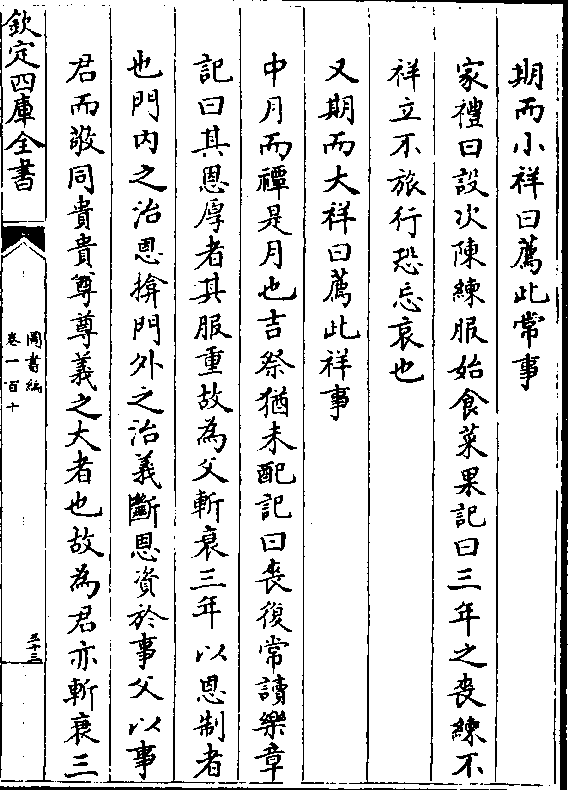 期而小祥曰薦此常事
家禮曰設次陳練服始食菜果記曰三年之喪練不
祥立不旅行恐忘哀也
又期而大祥曰薦此祥事
中月而禫是月也吉祭猶未配記曰喪復常讀樂章
記曰其恩厚者其服重故為父斬衰三年以恩制者
也門內之治恩揜門外之治義斷恩資於事父以事
君而敬同貴貴尊尊義之大者也故為君亦斬衰三
欽定四庫全書
圖書編
卷一百十
三十三